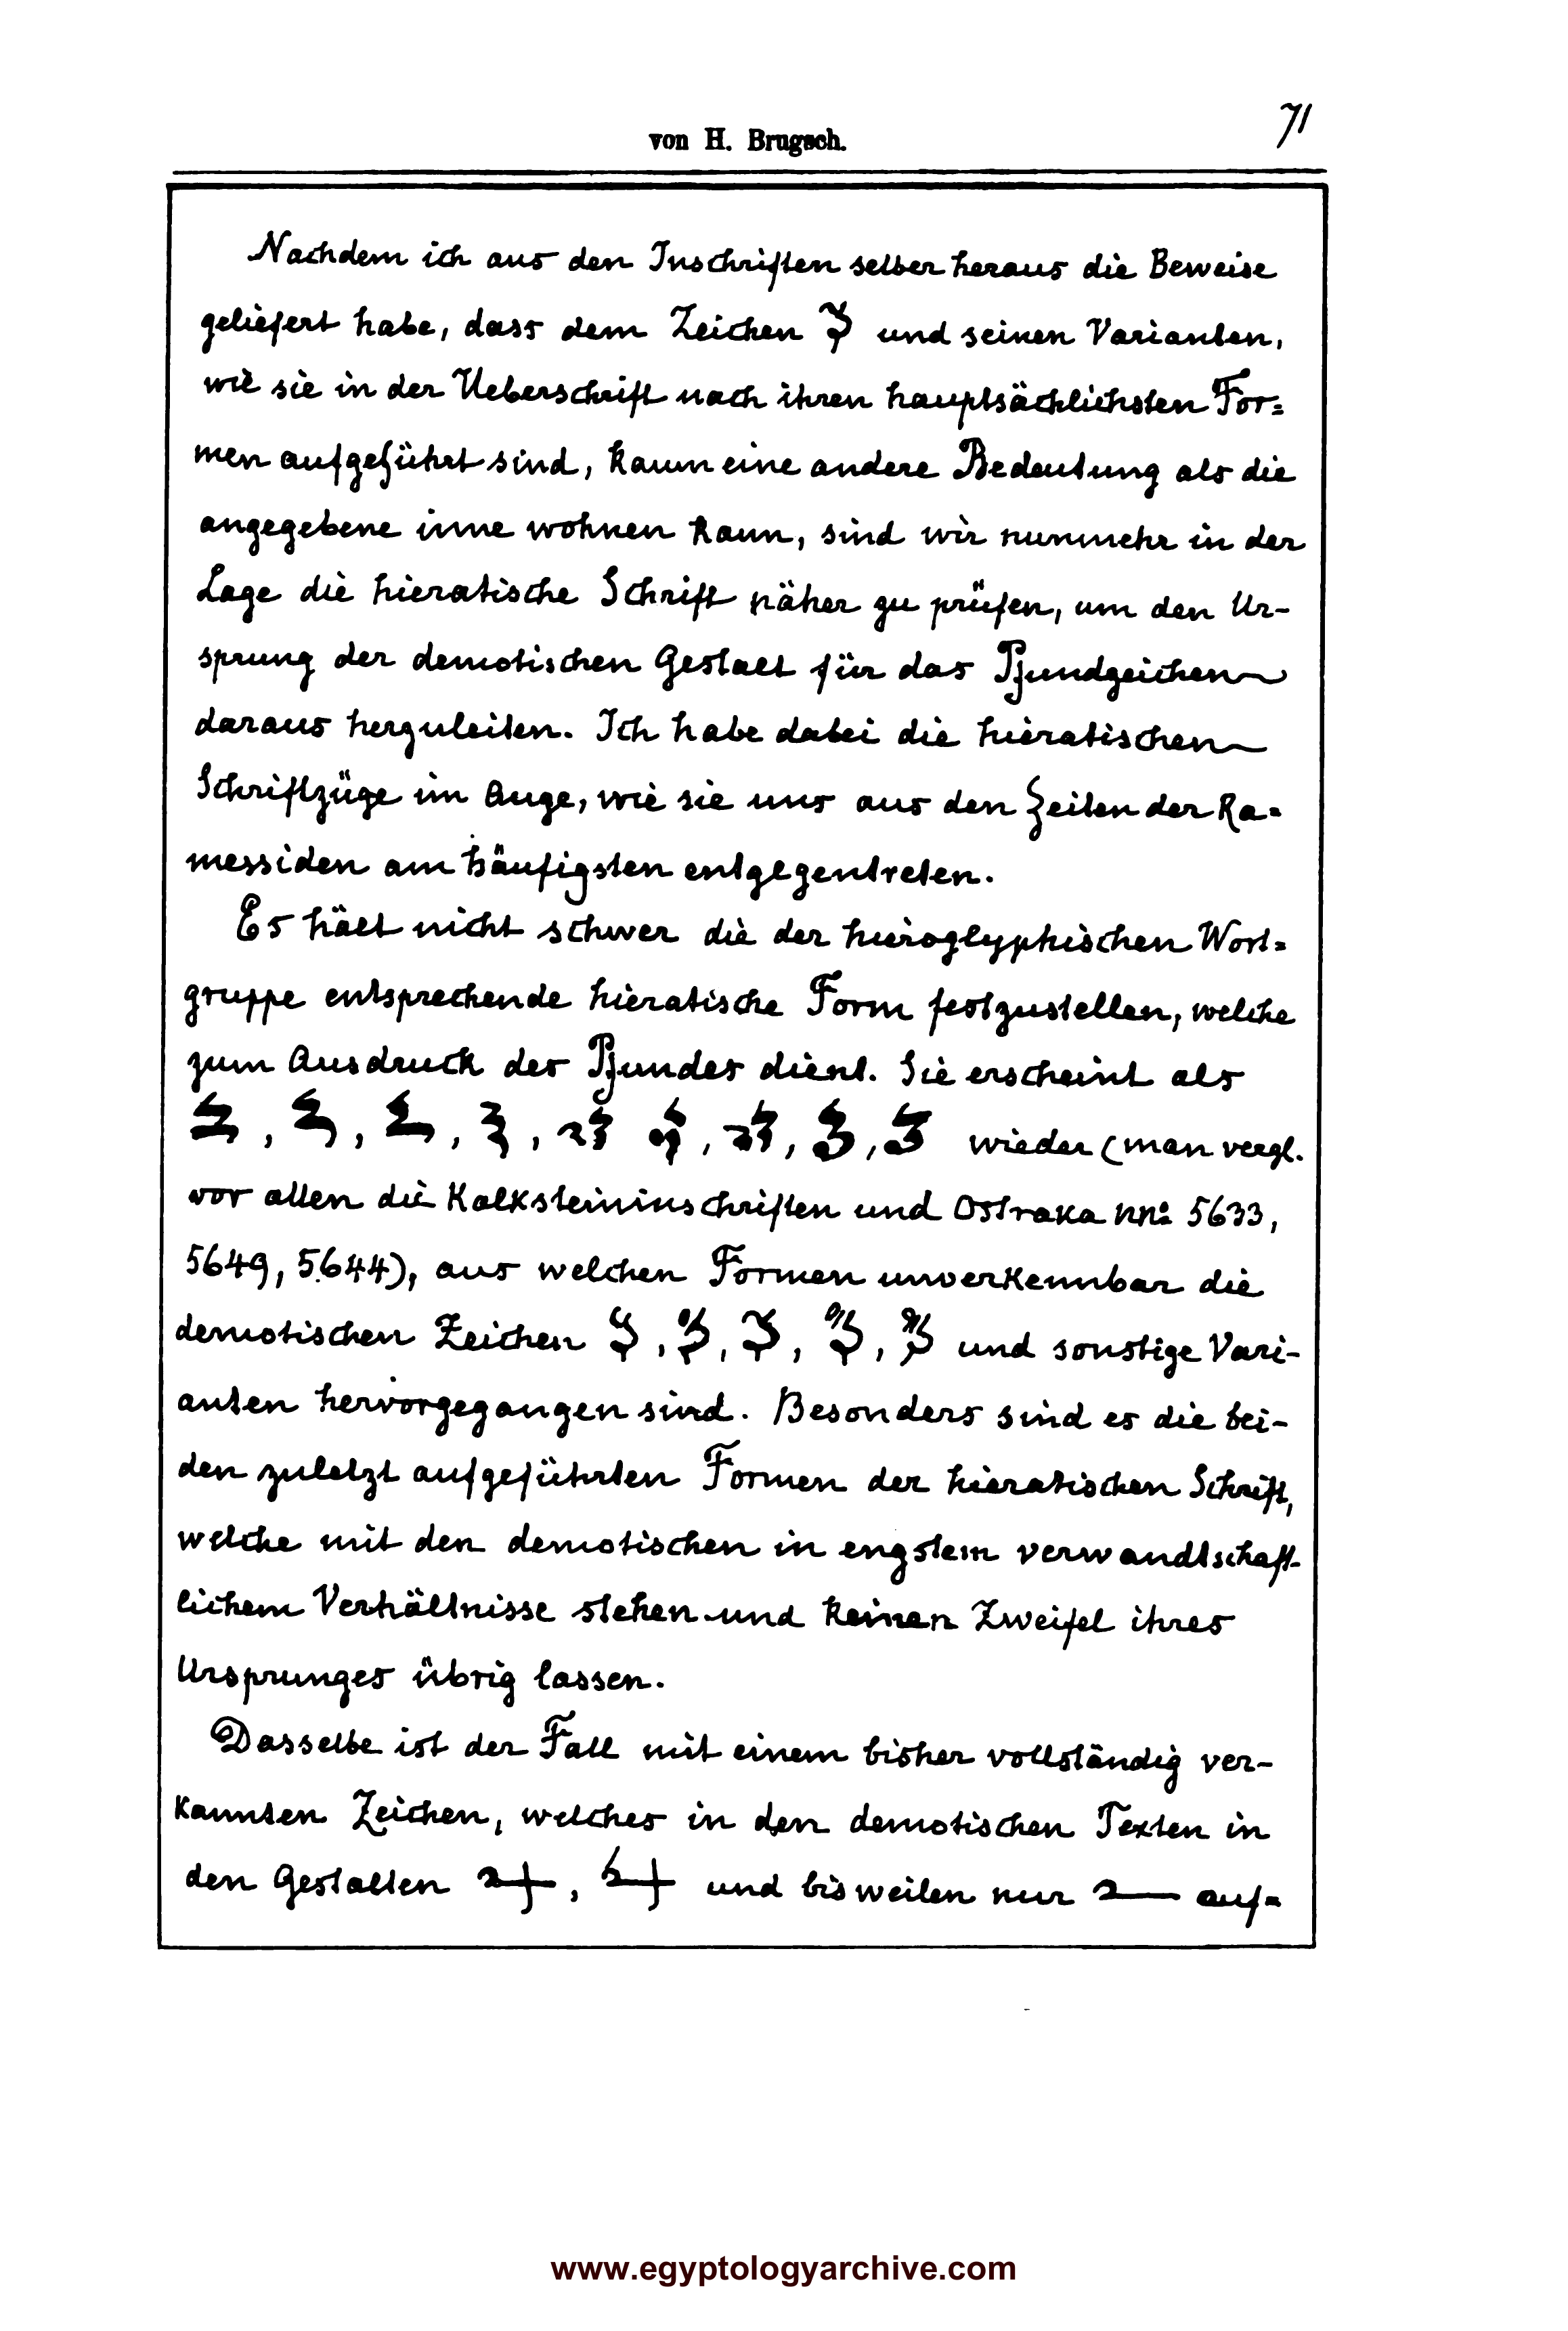 von H. Brugsch.
71
Nachdem ich aus den Inschriften selber heraus die Beweise
geliefert habe, dass dem Zeichen und seinen Varianten,
wie sie in der Ueberschrift nach ihren hauptsächlichsten For=
men aufgeführt sind, kaum eine andere Bedeutung als die
angegebene inne wohnen kann, sind wir nunmehr in der
Lage die hieratische Schrift näher zu prüfen, um den Ur-
sprung der demotischen Gestalt für das Pfundzeichen
daraus herzuleiten. Ich habe dabei die hieratischen
Schriftzüge im Auge, wie sie uns aus den Zeiten der Ra=
messiden am häufigsten entgegentreten.
Es hält nicht schwer die der hieroglyphischen Wort=
gruppe entsprechende hieratische Form festzustellen, welche
zum Ausdruck des Pfundes dient. Sie erscheint als
wieder (man vergl.
vor allen die Kalksteininschriften und Ostraka nno 5633,
5649, 5644), aus welchen Formen unverkennbar die
demotischen Zeichen und sonstige Vari-
anten hervorgegangen sind. Besonders sind es die bei-
den zuletzt aufgeführten Formen der hieratischen Schrift,
welche mit den demotischen in engstem verwandtschaft-
lichem Verhältnisse stehen und keinen Zweifel ihres
Ursprunges übrig lassen.
Dasselbe ist der Fall mit einem bisher vollständig ver-
kannten Zeichen, welches in den demotischen Texten in
den Gestalten und bisweilen nur auf=
www.egyptologyarchive.com